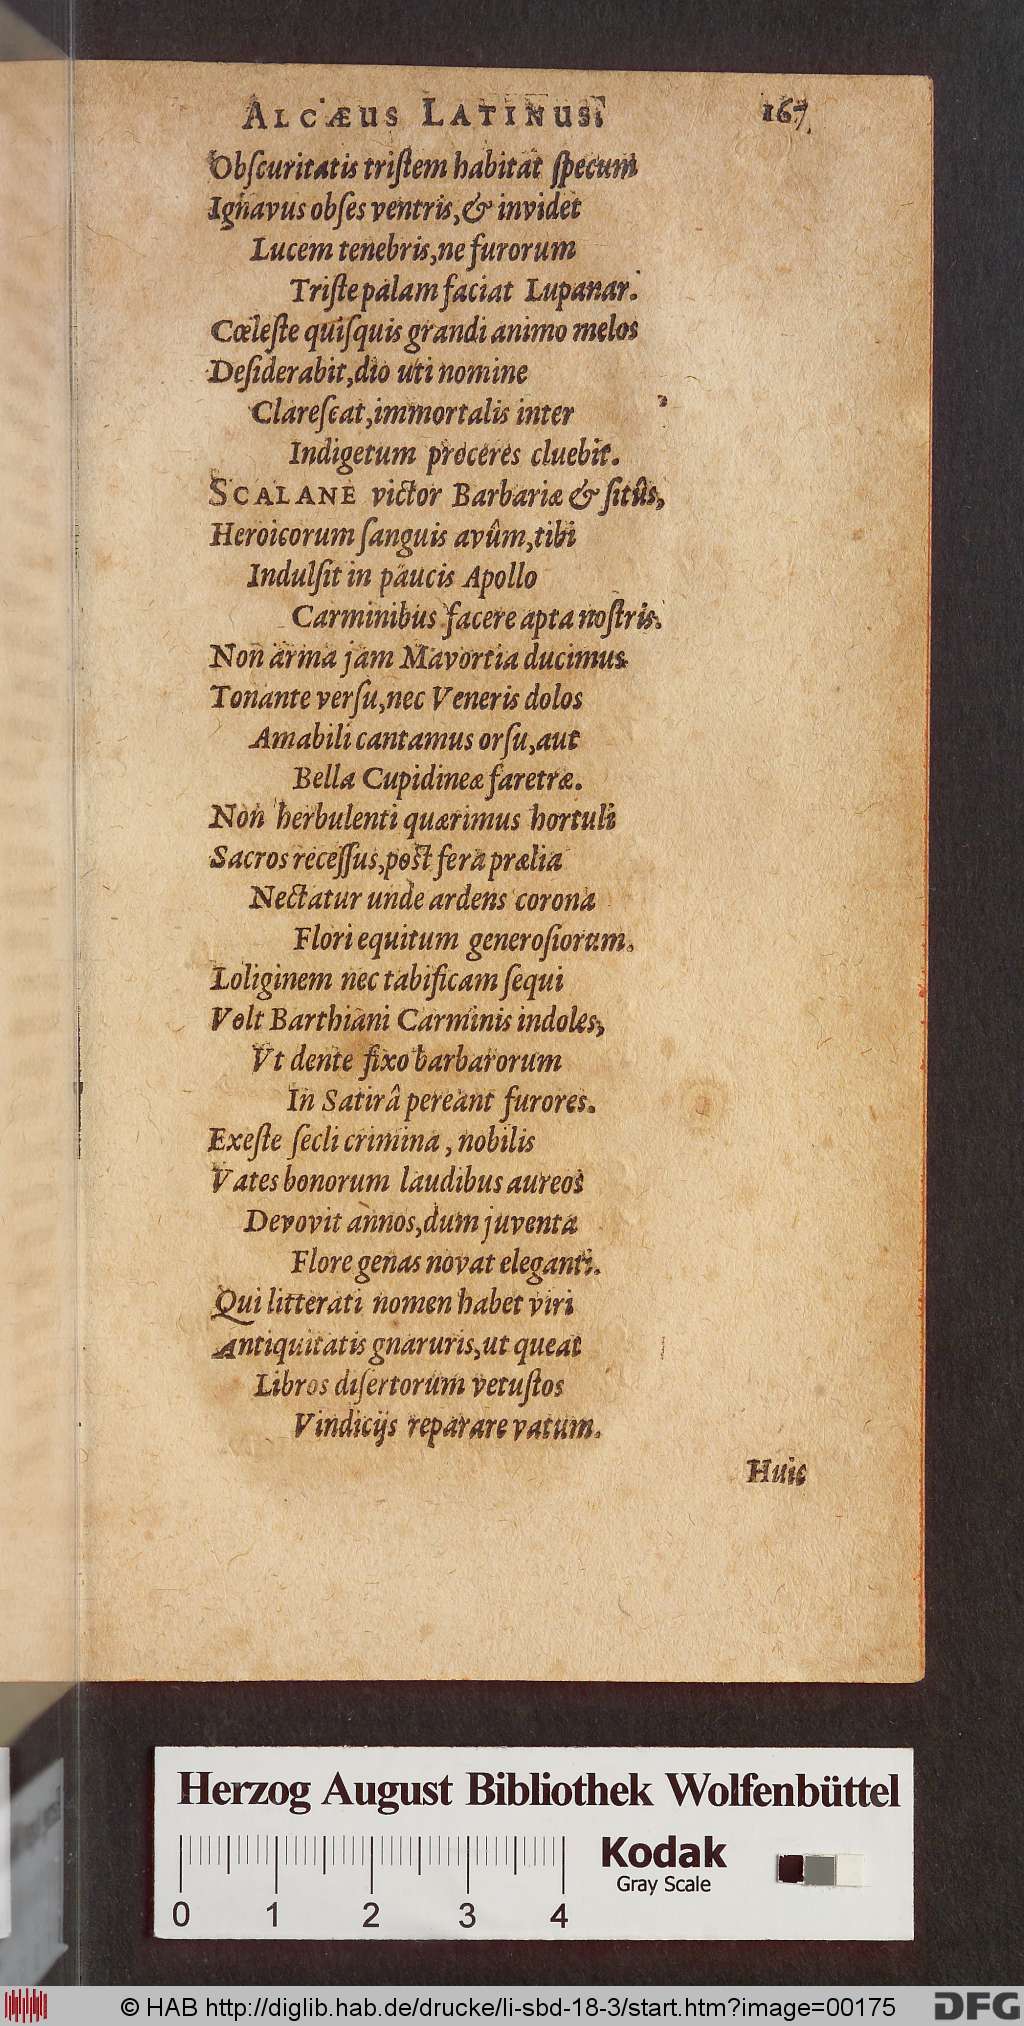 ALCÆUS LATINUS. 167.
Obſcuritatis triſtem habitat ſpecum
Ignavus obſes ventris, & invidet
Lucem tenebris, ne furorum
Triſte palam faciat Lupanar.
Cœleſte quiſquis grandi animo melos
Deſiderabit, dio uti nomine
Clareſcat, immortalis inter
Indigetum proceres cluebit.
SCALANE victor Barbariæ & ſitûs,
Heroicorum ſanguis avûm, tibi
Indulſit in paucis Apollo
Carminibus facere apta noſtris.
Non arma jam Mavortia ducimus
Tonante verſu, nec Veneris dolos
Amabili cantamus orſu, aut
Bella Cupidineæ faretræ.
Non herbulenti quærimus hortuli
Sacros receſſus, poſt fera prælia
Nectatur unde ardens corona
Flori equitum generoſiorum.
Loliginem nec tabificam ſequi
Volt Barthiani Carminis indoles,
Vt dente fixo barbarorum
In Satirâ pereant furores.
Exeſte ſecli crimina, nobilis
Vates bonorum laudibus aureos
Devovit annos, dum juventa
Flore genas novat eleganti.
Qui litterati nomen habet viri
Antiquitatis gnaruris, ut queat
Libros diſertorum vetuſtos
Vindicijs reparare vatum.
Huic
Herzog August Bibliothek Wolfenbüttel
Kodak
Gray Scale
0 1 2 3 4
© HAB http://diglib.hab.de/drucke/li-sbd-18-3/start.htm?image=00175
DFG